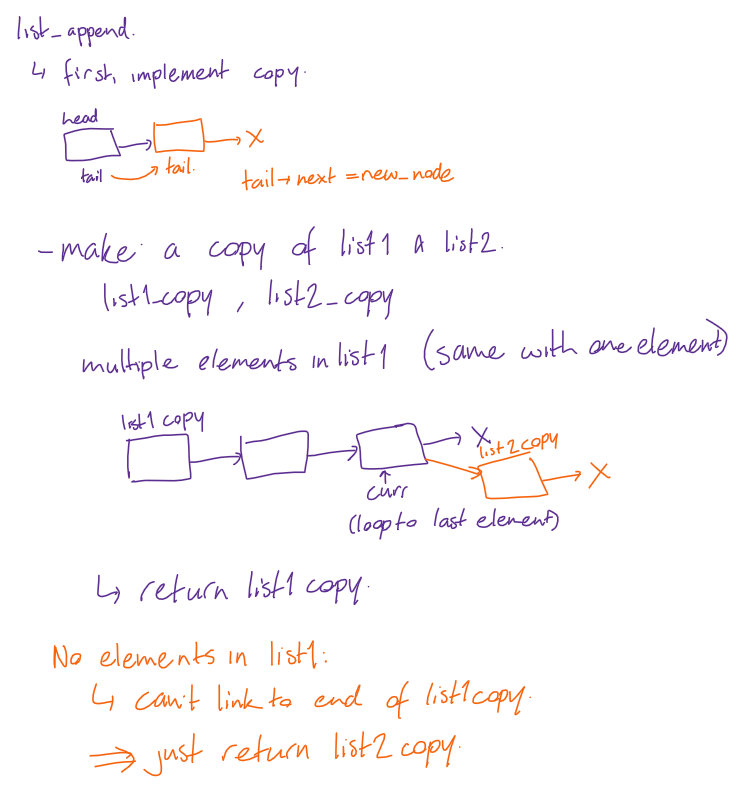 list_append.
↳ first, implement copy.
head
tail
tail.
X
tail→next = new_node
- make a copy of list1 & list2.
list1_copy, list2_copy
multiple elements in list1 (same with one element)
list1 copy
X
list2copy
X
curr
(loop to last element)
↳ return list1 copy.
No elements in list1:
↳ can't link to end of list1copy.
⇒ just return list2 copy.